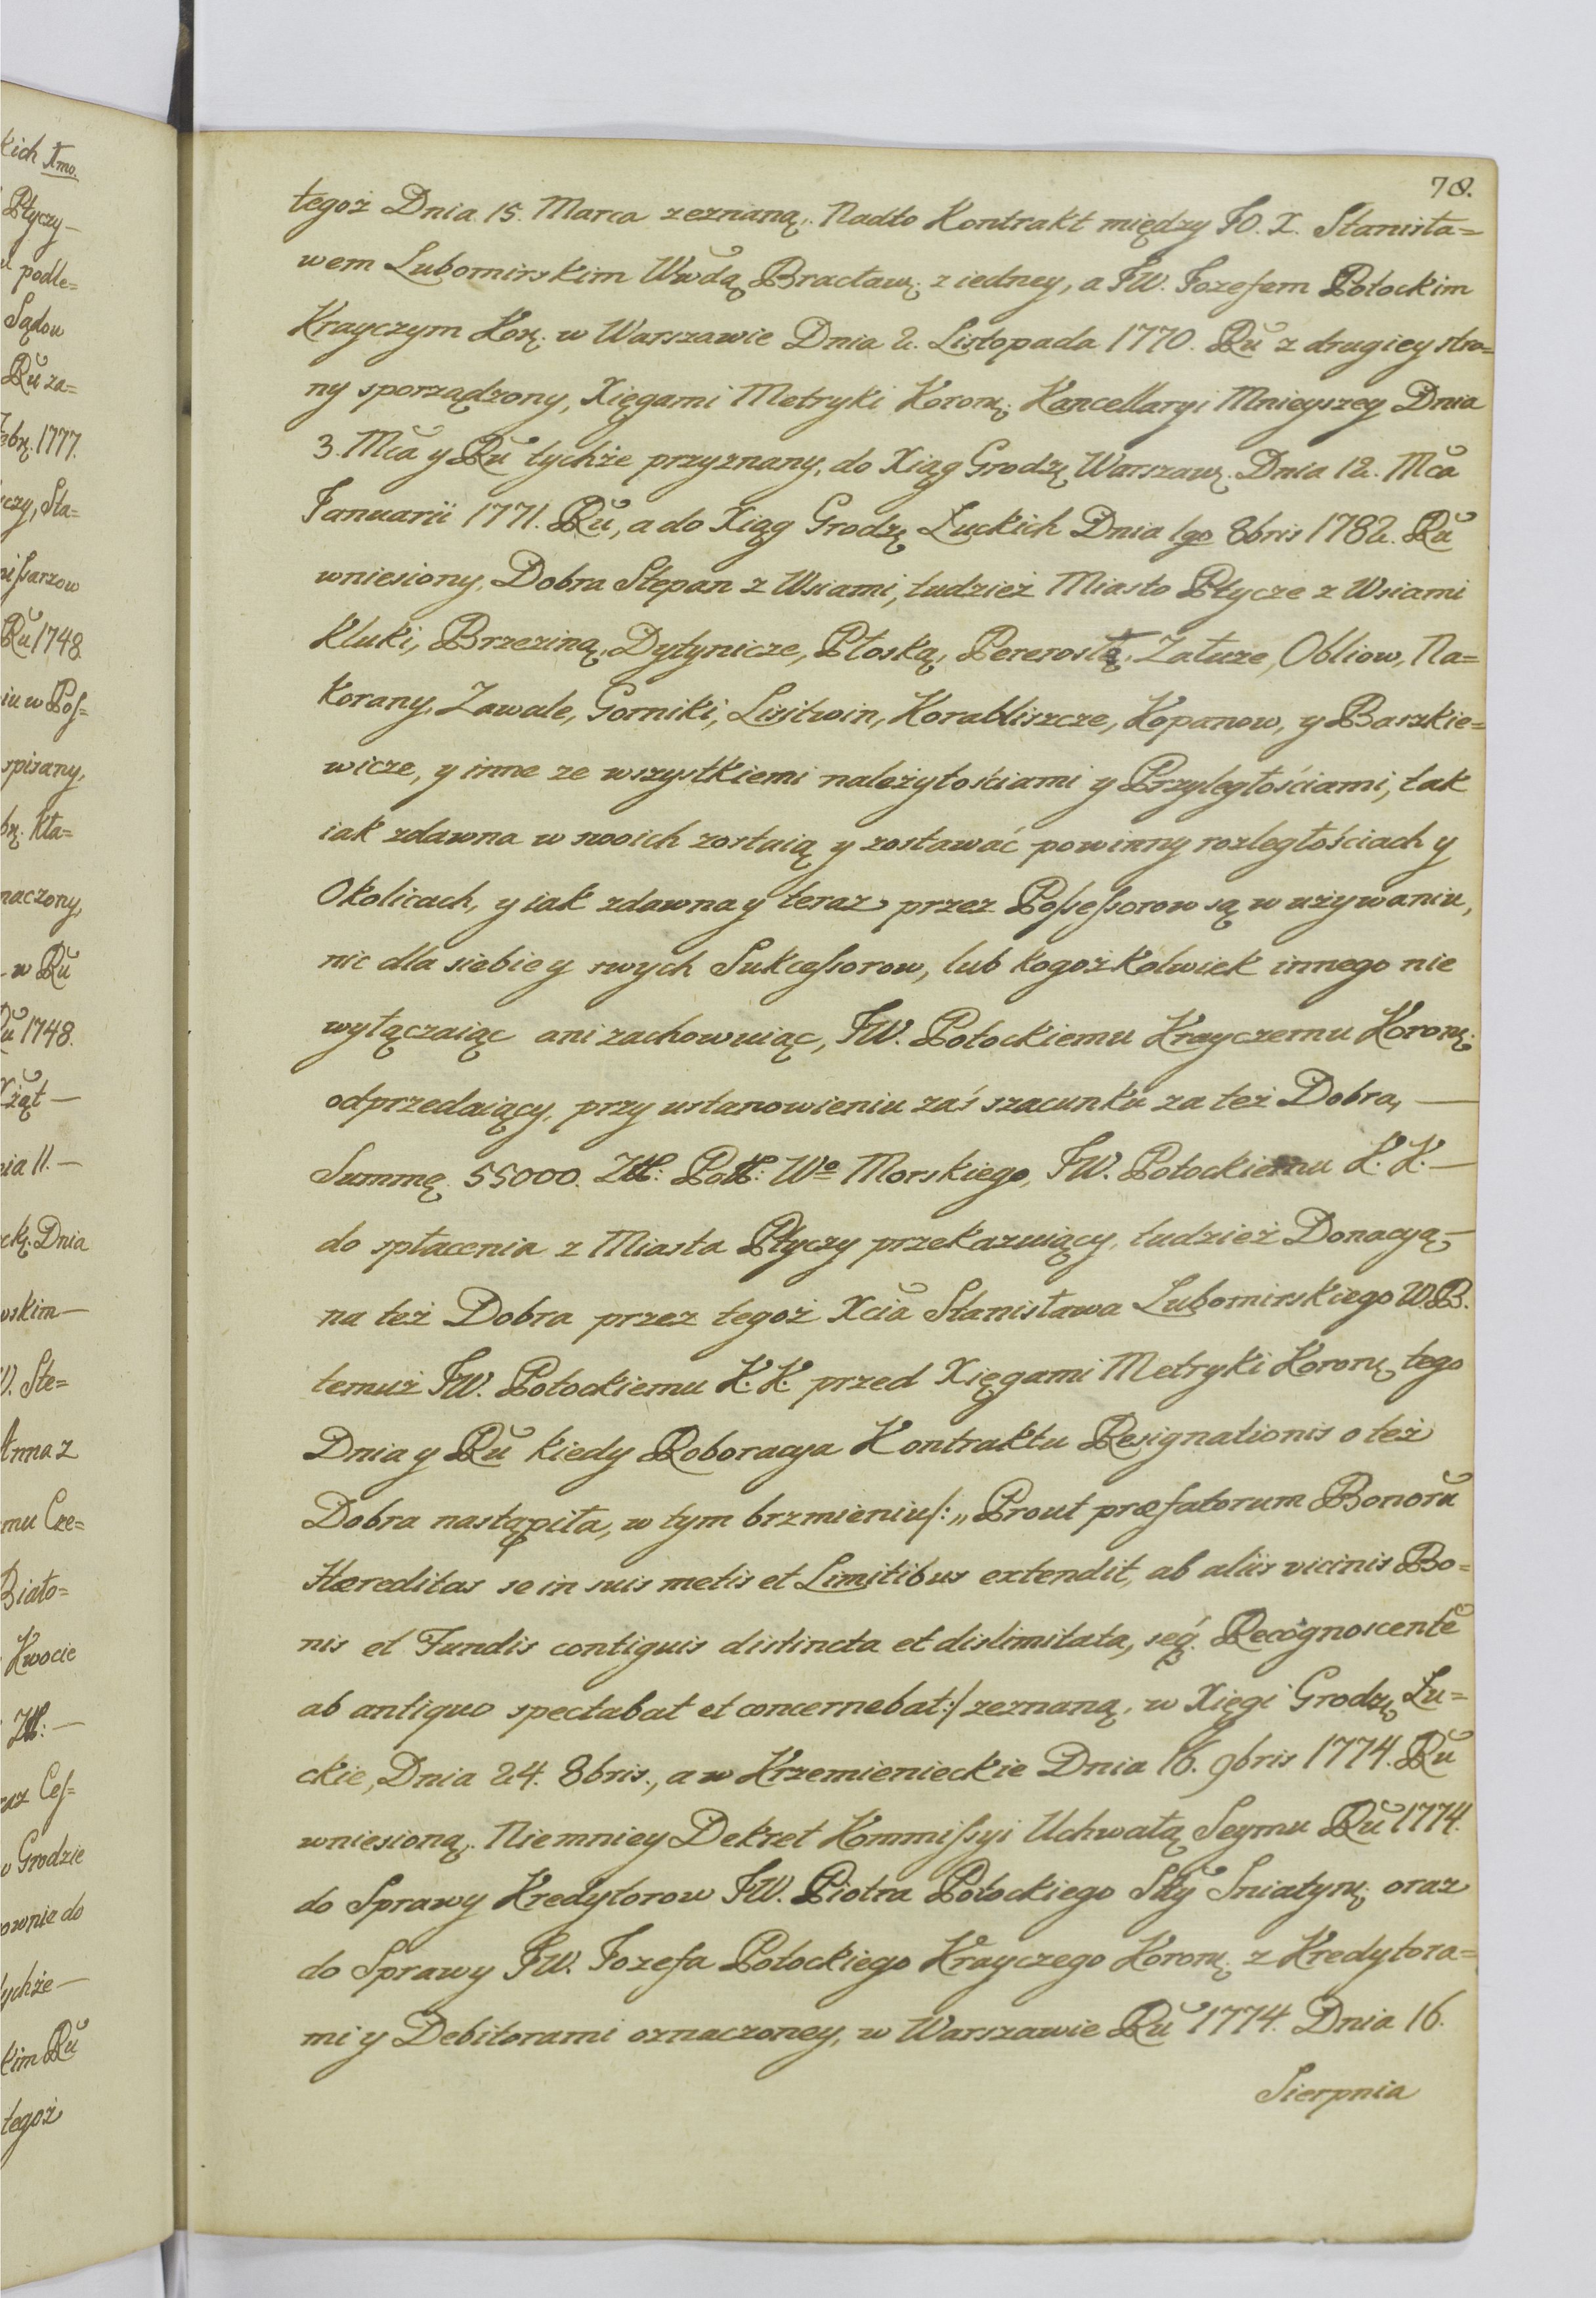 78.
tegoż Dnia 15. Marca zeznaną. Nadto Kontrakt między JO. X. Stanisła=
wem Lubomirskim Wwdą Bracław: z iedney, a JW. Jozefem Potockim
Krayczym Kor: w Warszawie Dnia 2. Listopada 1770. Ru z drugiey stro=
ny sporządzony, Xięgami Metryki Koron: Kancellaryi Mnieyszey Dnia
3. Mca y Ru tychże przyznany, do Xiąg Grodz: Warszaw: Dnia 12. Mca
Januarii 1771. Ru, a do Xiąg Grodz: Łuckich Dnia 1go 8bris 1782. Ru
wniesiony, Dobra Stepan z Wsiami, tudzież Miasto Ptycze z Wsiami
Kluki, Brzeziną, Dytynicze, Płoską, Pererosłą, Załuze, Obliow, Na=
korany, Zawale, Gorniki, Lisitwin, Korabliszcze, Kopanow, y Baszkie=
wicze, y inne ze wszystkiemi należytościami y Przyległościami, tak
iak zdawna w swoich zostaią y zostawać powinny rozległościach y
Okolicach, y iak zdawna y teraz przez Possessorow są w używaniu,
nic dla siebie y swych Sukcessorow, lub kogożkolwiek innego nie
wyłączaiąc ani zachowuiąc, JW. Potockiemu Krayczemu Koron:
odprzedaiący, przy ustanowieniu zaś szacunku za też Dobra, —
Summę 55000. Zł: Pol: Wo Morskiego, JW. Potockiemu K. K. —
do spłacenia z Miasta Ptyczy przekazuiący, tudzież Donacyą —
na też Dobra przez tegoż Xcia Stanisława Lubomirskiego W.B.
temuż JW. Potockiemu K. K. przed Xięgami Metryki Koron: tego
Dnia y Ru kiedy Roboracya Kontraktu Resignationis o też
Dobra nastąpiła, w tym brzmieniu/: „Prout præfatorum Bonoru
Hæreditas se in suis metis et Limitibus extendit, ab aliis vicinis Bo=
nis et Fundis contiguis distincta et dislimitata, seq. Recognoscente
ab antiquo spectabat et concernebat:/ zeznaną, w Xięgi Grodz: Łu=
ckie, Dnia 24. 8bris., a w Krzemienieckie Dnia 16. 9bris 1774. Ru
wniesioną. Niemniey Dekret Kommissyi Uchwałą Seymu Ru 1774.
do Sprawy Kredytorow JW. Piotra Potockiego Stty Sniatyn: oraz
do Sprawy JW. Jozefa Potockiego Krayczego Koron: z Kredytora=
mi y Debitorami oznaczoney, w Warszawie Ru 1774. Dnia 16.
Sierpnia